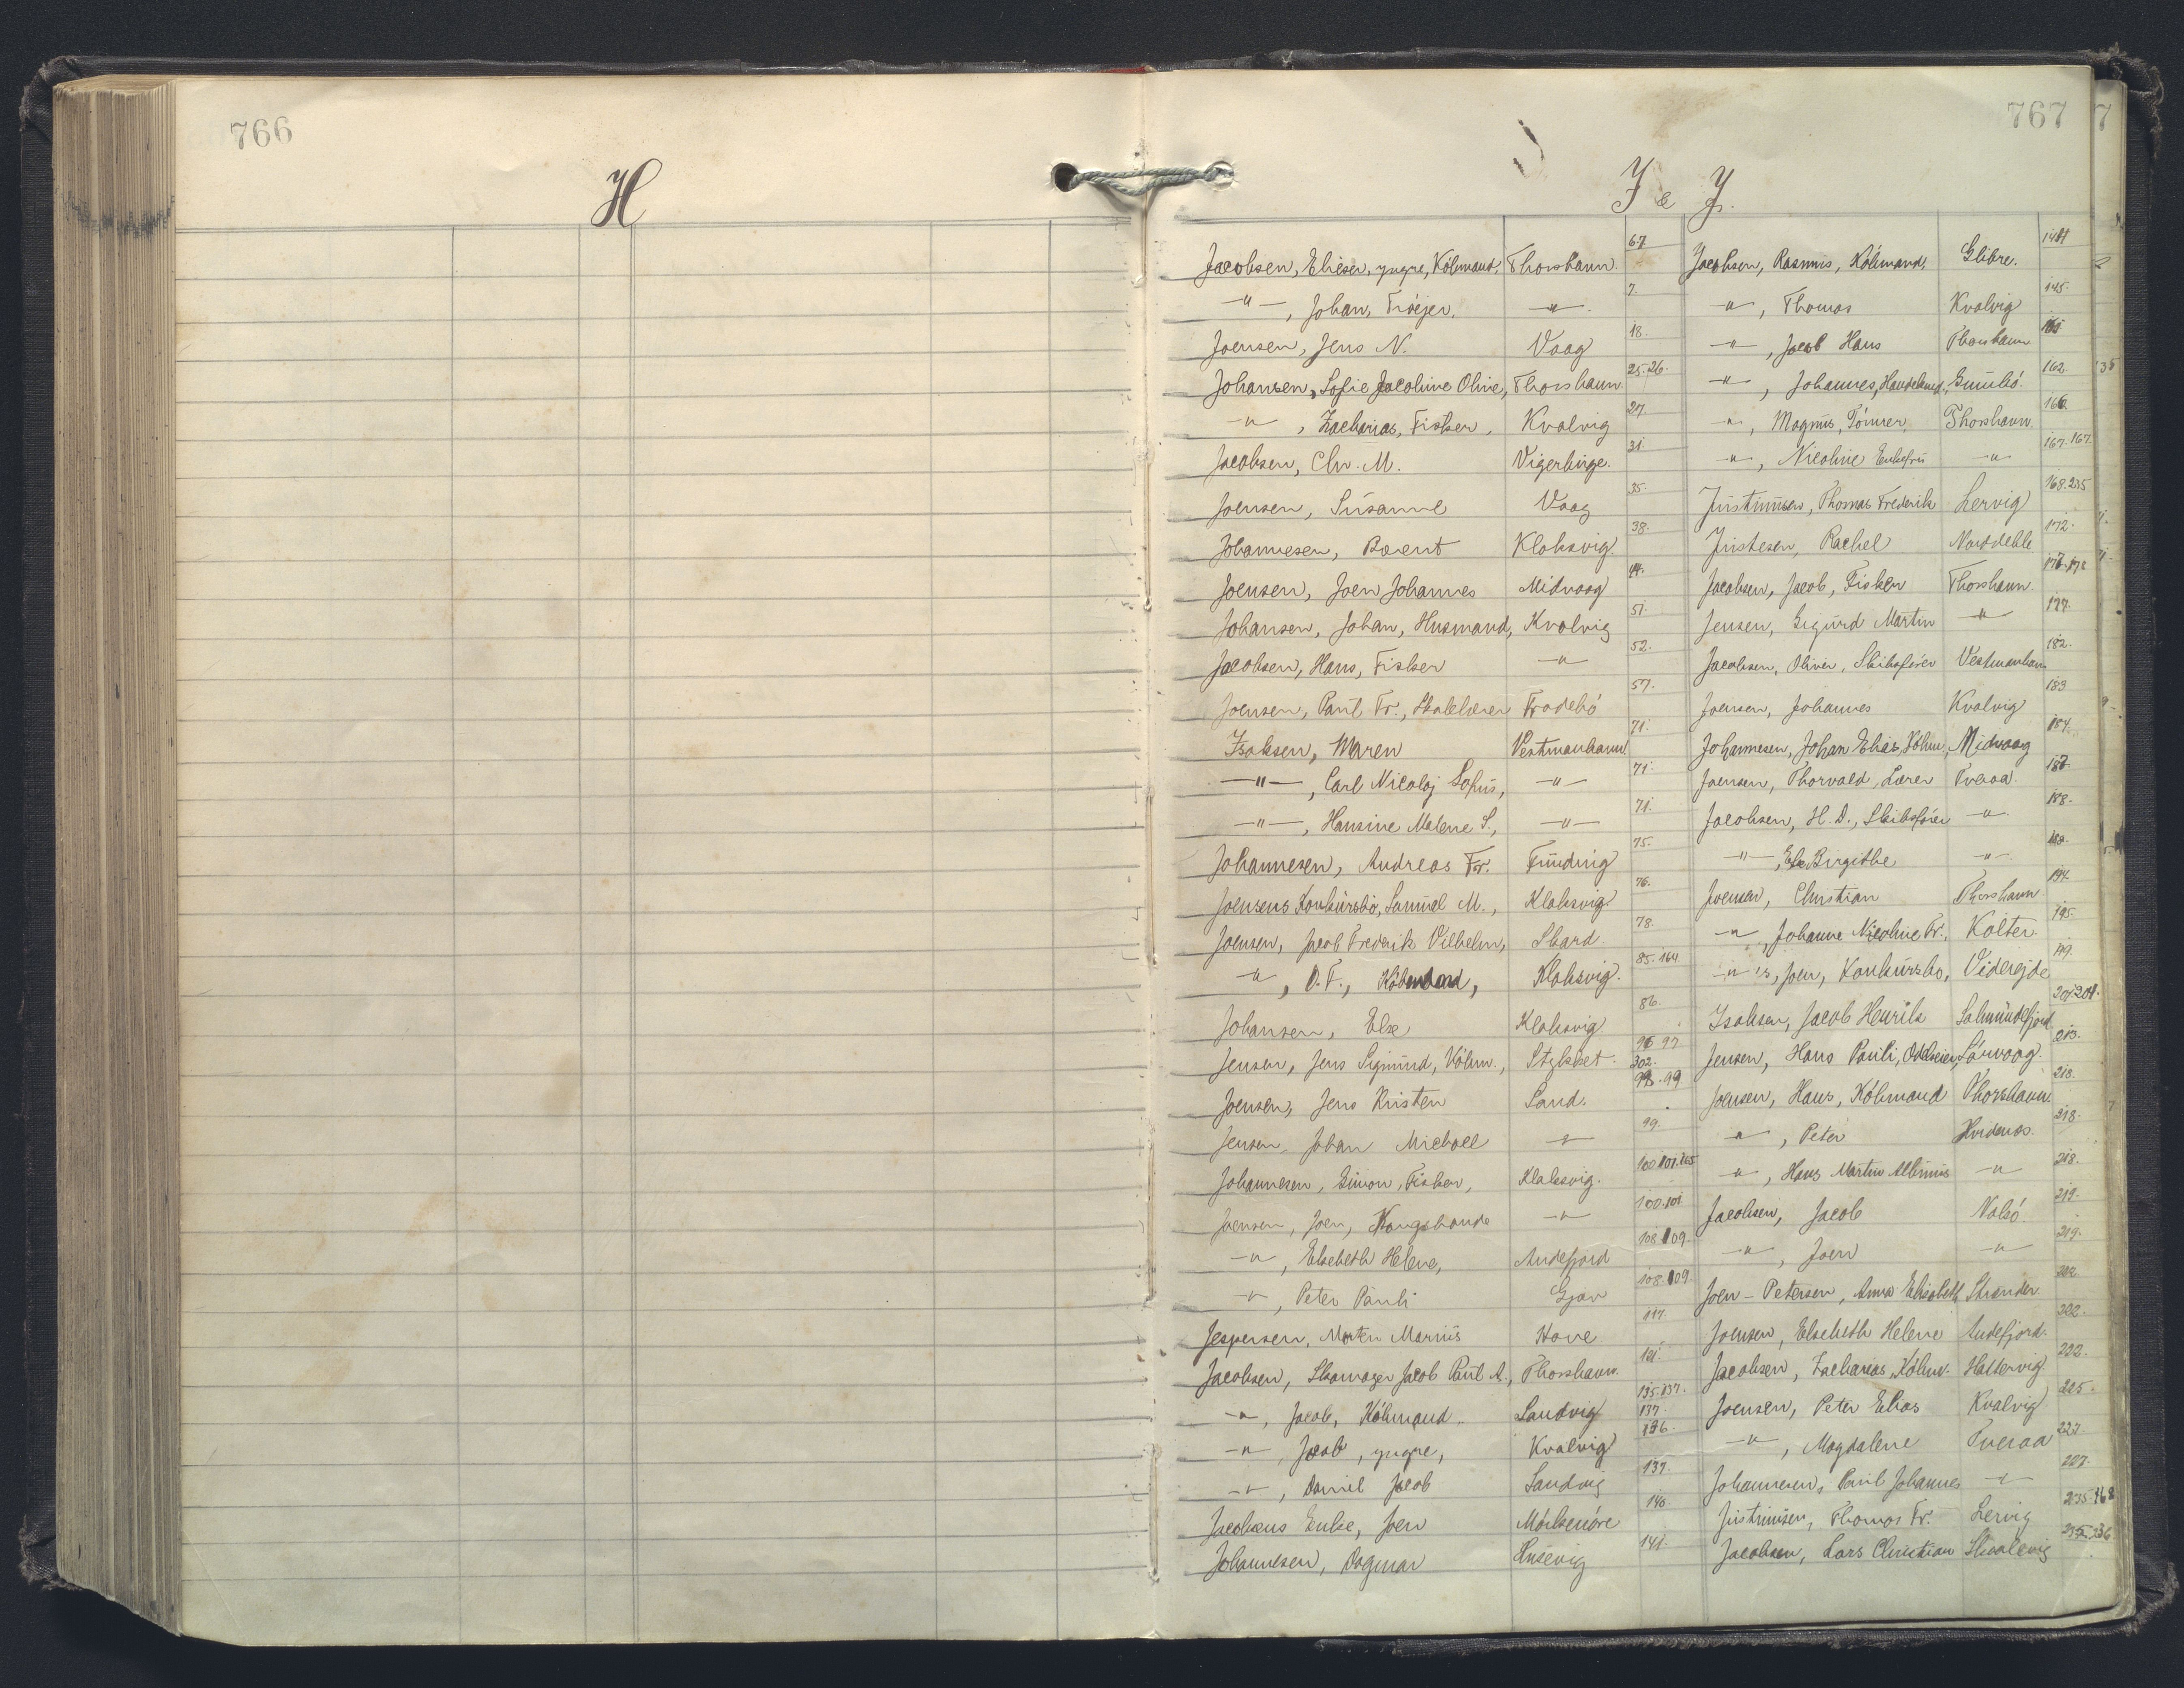 766
H
767
I & J.
Jacobsen, Elieser, yngre, Købmand, Thorshavn. 6.7.
—"—, Johan, Frøejer, —"— 7.
Joensen, Jens N. Vaag 18.
Johansen, Sofie Jacobine Olive, Thorshavn 25.26.
—"—, Zacharias, Fisker, Kvalvig 27.
Jacobsen, Chr. M. Vigerbirge. 31.
Joensen, Susanne Vaag 35.
Johannesen, Barent Klaksvig 38.
Joensen, Joen Johannes Midvaag 44.
Johansen, Johan, Husmand, Kvalvig 51.
Jacobsen, Hans, Fisker —"— 52.
Joensen, Paul Fr., Skolelærer Frodebø 57.
Isaksen, Maren Vestmanhavn 71.
—"—, Carl Nicolaj Sofus, —"— 71.
—"—, Hansine Malene S., —"— 71.
Johannesen, Andreas Fr. Funding 75.
Joensens Konkursbo, Samuel M., Klaksvig 76.
Joensen, Jacob Frederik Vilhelm, Skard 78.
—"—, O. F., Købmand, Klaksvig. 85.164
Johansen, Else Klaksvig 86.
Jensen, Jens Sigmund, Købm., Stykket 96 97. 302.
Joensen, Jens Kristen Sand. 98.99
Jensen, Johan Michael —"— 99.
Johannesen, Simon, Fisker, Klaksvig. 100.101.165
Joensen, Joen, Kongsbonde —"— 100.101
—"—, Elsebeth Helene, Andefjord 108.109.
—"—, Peter Pauli Gjov 108.109.
Jespersen, Morten Marius Hove 117.
Jacobsen, Skomager Jacob Paul A., Thorshavn. 121.
—"—, Jacob, Købmand. Sandvig 135.137. 137.
—"— Jacob, yngre, Kvalvig 136.
—"—, Daniel Jacob Sandvig 137.
Jacobsens Enke, Joen Morkenøre 140.
Johannesen, Dagmar Husevig 141.
Jacobsen, Rasmus, Købmand, Glibre. 144
—"—, Thomas Kvalvig 145.
—"—, Jacob Hans Thorshavn 161
—"—, Johannes, Handelsmd., Gunebø. 162
—"—, Magnus, Tømrer, Thorshavn 166.
—"—, Nicoline Enkefru —"— 167.167.
Justinusen, Thomas Frederik Lervig 168.235
Justesen, Rachel Norddeble 172.
Jacobsen, Jacob, Fisker Thorshavn. 178.178
Jensen, Sigurd Martin —"— 177.
Jacobsen, Oliver, Skibsfører Vestmanhavn 182.
Joensen, Johannes Kvalvig 183
Johannesen, Johan Elias, Købm., Midvaag 184.
Joensen, Thorvald, Lærer Tveraa. 187
Jacobsen, H. D., Skibsfører —"— 188.
—"—, Else Birgithe —"—
Joensen, Christian Thorshavn 194.
—"—, Johanne Nicoline Fr., Kolter. 195.
—"—s, Joen, Konkursbo, Viderejde 199.
Isaksen, Jacob Henrik Salmundefjord 201.201.
Jensen, Hans Pauli, Odelseier, Sørvaag. 213.
Joensen, Hans, Købmand Thorshavn. 218.
—"—, Peter Hvidenæs. 218.
—"—, Hans Martin Albinus —"— 218.
Jacobsen, Jacob Nalsø 219.
—"—, Joen —"— 219.
Joen-Petersen, Anna Elisabeth Strænder 222
Joensen, Elsebeth Helene Andefjord. 222.
Jacobsen, Zacharias, Købm. Haldervig 222.
Joensen, Peter Elias Kvalvig 225.
—"—, Magdalene Tveraa 227.
Johannesen, Paul Johannes —"— 227.
Justinusen, Thomas Fr. Lervig 235.168
Jacobsen, Lars Christian Skaalevig 235.236